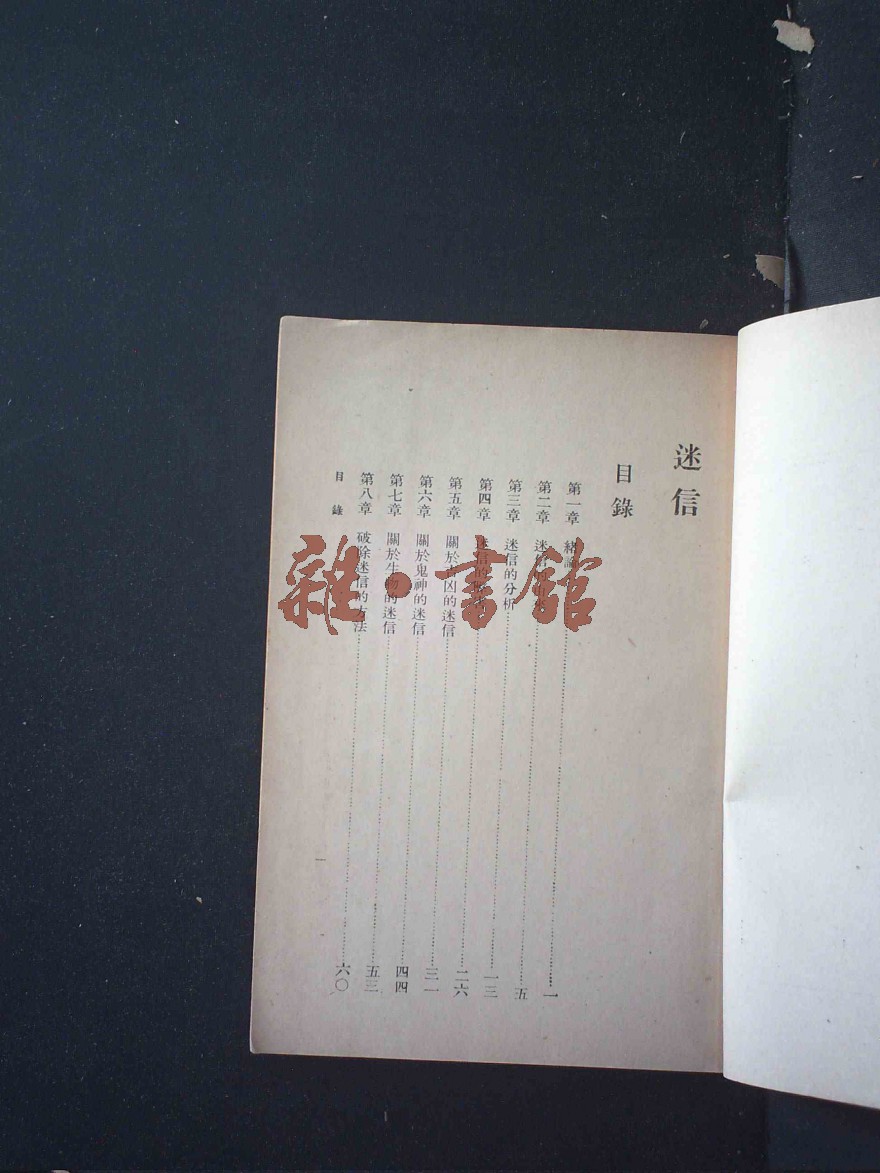 迷信
目錄
第一章 緒論……一
第二章 迷信的……五
第三章 迷信的分析……一三
第四章 迷信的……二六
第五章 關於吉凶的迷信……三一
第六章 關於鬼神的迷信……四四
第七章 關於生物的迷信……五三
第八章 破除迷信的方法……六〇
目錄 一
雜·書館